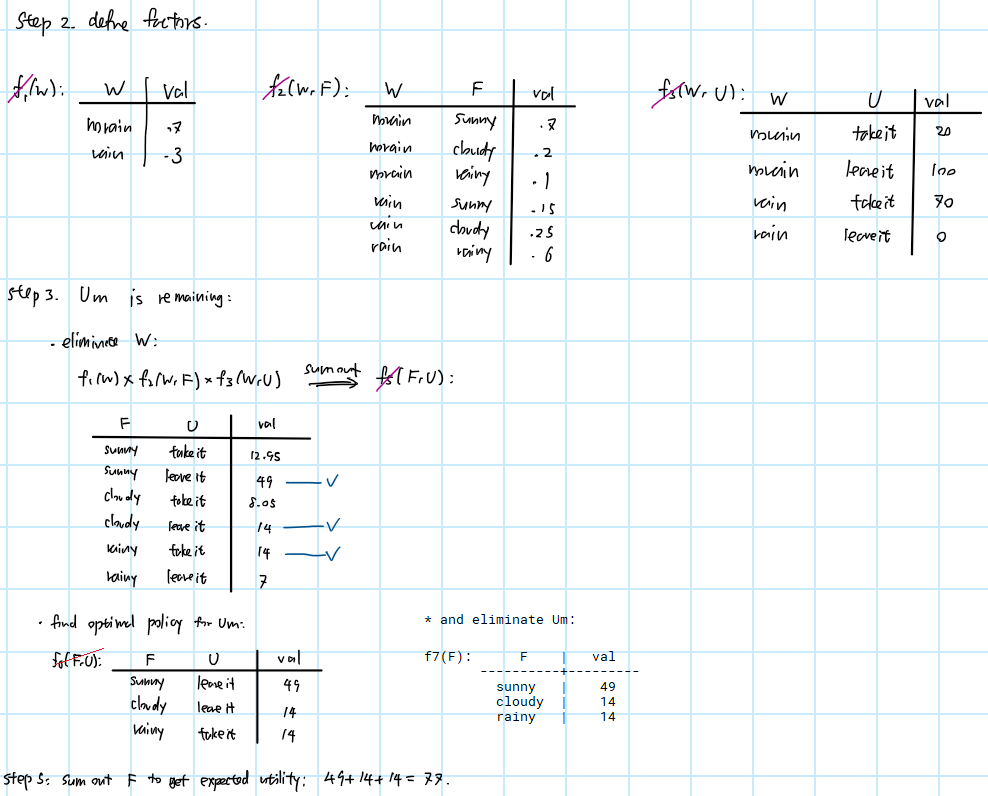 Step 2. define factors.
f1(W): W val
norain .7
rain .3
f2(W, F): W F val
norain sunny .7
norain cloudy .2
norain rainy .1
rain sunny .15
rain cloudy .25
rain rainy .6
f3(W, U): W U val
norain take it 20
norain leave it 100
rain take it 70
rain leave it 0
step 3. Um is remaining:
- eliminate W:
f1(W) × f2(W, F) × f3(W, U) sum out f5(F, U):
F U val
sunny take it 12.95
sunny leave it 49 ✓
cloudy take it 8.05
cloudy leave it 14 ✓
rainy take it 14 ✓
rainy leave it 7
· find optimal policy for Um:
f6(F, U): F U val
sunny leave it 49
cloudy leave it 14
rainy take it 14
* and eliminate Um:
f7(F): F | val
sunny | 49
cloudy | 14
rainy | 14
step 5: sum out F to get expected utility: 49+14+14 = 77.